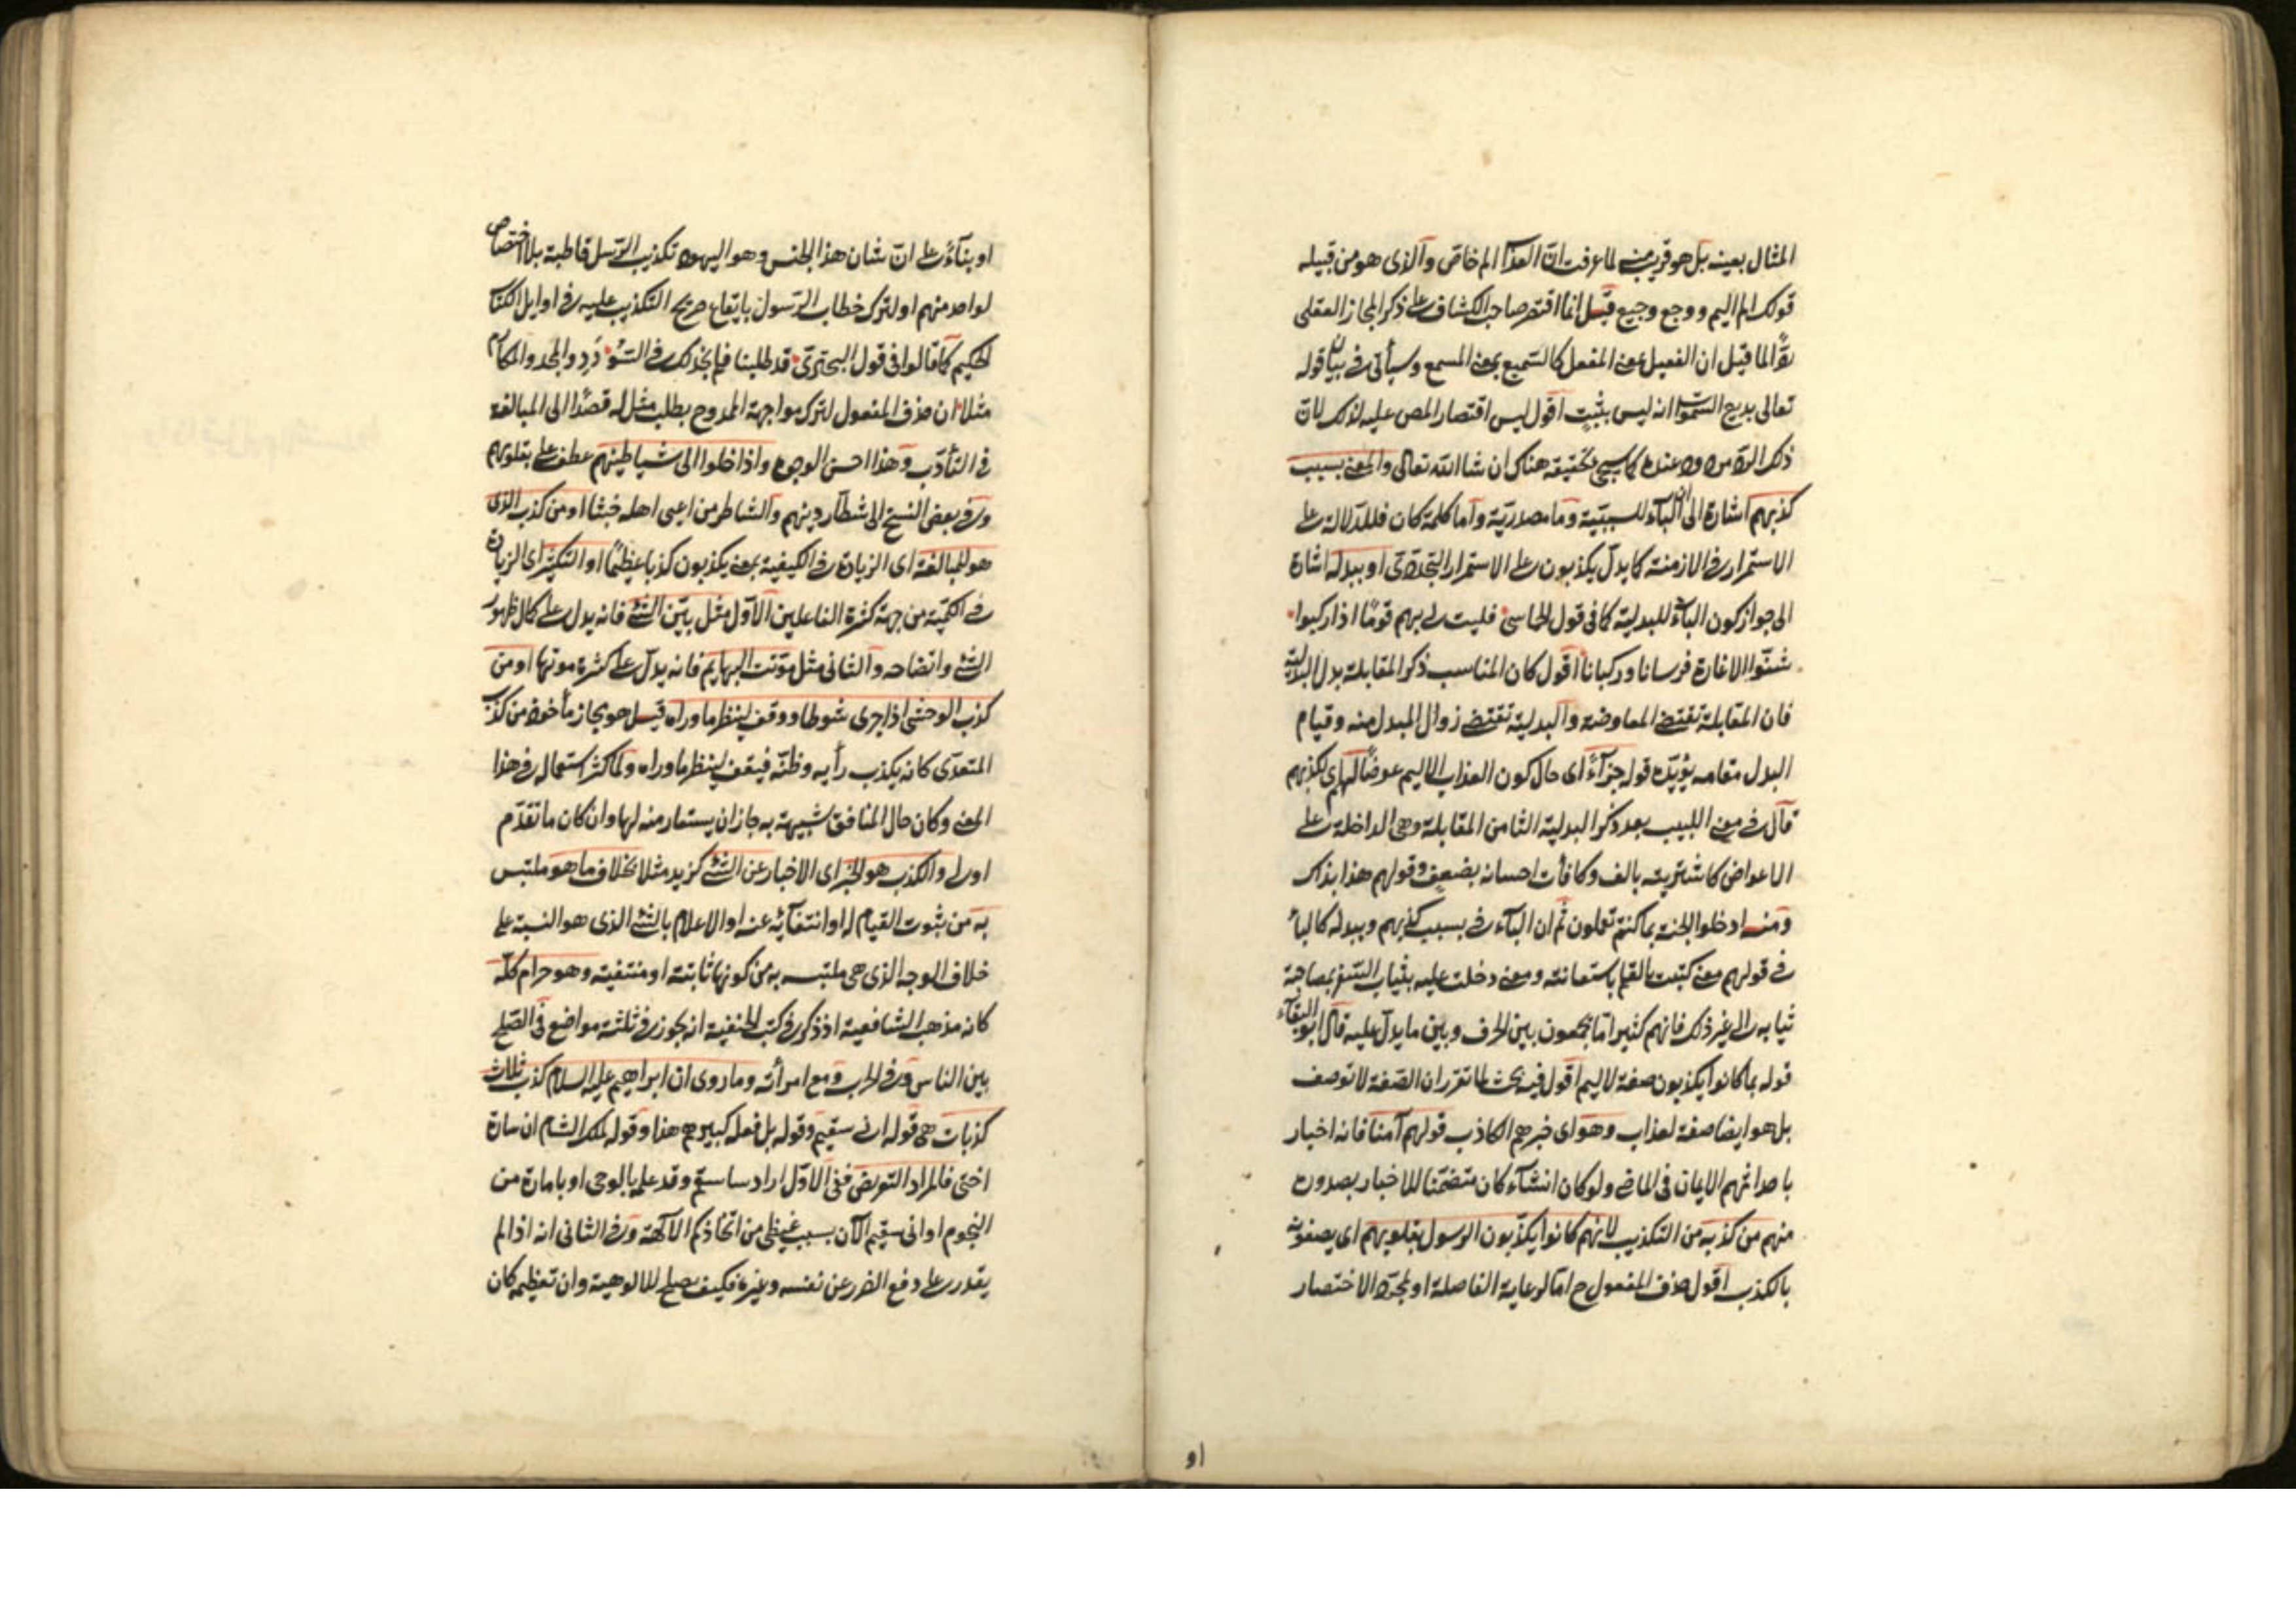 المثال بعينه بل هو قريب منه لما عرفت ان العذاب الم خاص والذي هو من قبيله
قولك الم اليم ووجع وجيع قيل انما اقتصر صاحب الكشاف على ذكر المجاز العقلي
لما قيل ان الفعيل بمعنى المفعل كالسميع بمعنى المسمع وسيأتي في بيان قوله
تعالى بديع السموات انه ليس بثبت اقول ليس اقتصار المص عليه لذلك لان
ذلك المردود عنده كما سيجئ تحقيقه هناك ان شا الله تعالى والمعنى بسبب
كذبهم اشارة الى ان الباء للسببية وما مصدرية وأما كلمة كان فللدلالة على
الاستمرار في الازمنة كما يدل يكذبون على الاستمرار التجددي او ببدله اشارة
الى جواز كون الباء للبدلية كما في قول الحماسي فليت لي بهم قوما اذا ركبوا
شنوا الاغارة فرسانا وركبانا اقول كان المناسب ذكر المقابلة بدل البدلية
فان المقابلة تقتضي المعاوضة والبدلية تقتضي زوال المبدل منه وقيام
البدل مقامه يؤيده قوله جزآءً اي حال كون العذاب الاليم عوضا لهم اي لكذبهم
قال في مغني اللبيب بعد ذكر البدلية الثامن المقابلة وهي الداخلة على
الاعواض كاشتريته بالف وكافأت احسانه بضعف وقولهم هذا بذاك
ومنه ادخلوا الجنة بما كنتم تعملون ثم ان البآء في بسبب كذبهم وببدله كالباء
في قولهم معنى كتبت بالقلم باستعانته ومعنى دخلت عليه بثياب السفر بمصاحبة
ثيابه الى غير ذلك فانهم كثيرا ما يجمعون بين الحرف وبين ما يدل عليه قال ابو البقآء
قوله بما كانوا يكذبون صفة لاليم اقول فيه بحث لما تقرر ان الصفة لا توصف
بل هو ايضا صفة لعذاب وهو اي خبرهم الكاذب قولهم آمنا فانه اخبار
باحداثهم الايمان في الماضي ولو كان انشآء كان متضمنا للاخبار بصدوره
منهم من كذبه من التكذيب لانهم كانوا يكذبون الرسول بقلوبهم اي يصفونه
بالكذب اقول حذف المفعول ح اما لرعاية الفاصلة او لمجرد الاختصار
او
او بنآءً على ان شان هذا الجنس وهو اليهود تكذيب الرسل قاطبة بلا اختصاص
لواحد منهم او لترك خطاب الرسول بايقاع صريح التكذيب عليه في اوايل الكتاب
الحكيم كما قالوا في قول البحتري قد طلبنا فلم نجد لك في السؤدد والمجد والمكارم
مثلا ان حذف المفعول لترك مواجهة الممدوح بطلب مثل له قصدا الى المبالغة
في التأدب وهذا احسن الوجوه واذا خلوا الى شياطينهم عطف على بقلوبهم
وفي بعض النسخ الى شطار دينهم والشاطر من اعيى اهله خبثا او من كذب الذي
هو للمبالغة اي الزيادة في الكيفية بمعنى يكذبون كذبا عظيما او التكثير اي الزيادة
في الكمية من جهة كثرة الفاعلين الاول مثل بين الشئ فانه يدل على كمال ظهور
الشئ واتضاحه والثاني مثل موتت البهايم فانه يدل على كثرة موتها او من
كذب الوحشي اذا جرى شوطا ووقف لينظر ما وراه قيل هو مجاز مأخوذ من كذب
المتعدي كانه يكذب رأيه وظنه فيقف لينظر ما وراه ولما كثر استعماله في هذا
المعنى وكان حال المنافق شبيهة به جاز ان يستعار منه لها وان كان ما تقدم
اولى والكذب هو الخبر اي الاخبار عن الشئ كزيد مثلا بخلاف ما هو ملتبس
به من ثبوت القيام له او انتفآئه عنه او الاعلام بالشئ الذي هو النسبة على
خلاف الوجه الذي هي ملتبسه به من كونها ثابتة او منتفية وهو حرام كله
كانه مذهب الشافعية اذ ذكر في كتب الحنفية انه يجوز في ثلثة مواضع في الصلح
بين الناس وفي الحرب ومع امرأته وما روى ان ابراهيم عليه السلام كذب ثلاث
كذبات هي قوله اني سقيم وقوله بل فعله كبيرهم هذا وقوله لملك الشام ان سارة
اختي فالمراد التعريض ففي الاول اراد ساسقم وقد علمه بالوحي او بامارة من
النجوم او اني سقيم الآن بسبب غيظي من اتخاذكم الآلهة وفي الثاني انه اذا لم
يقدر على دفع الضرر عن نفسه وغيره فكيف يصلح للالوهية وان تعظيمه كان